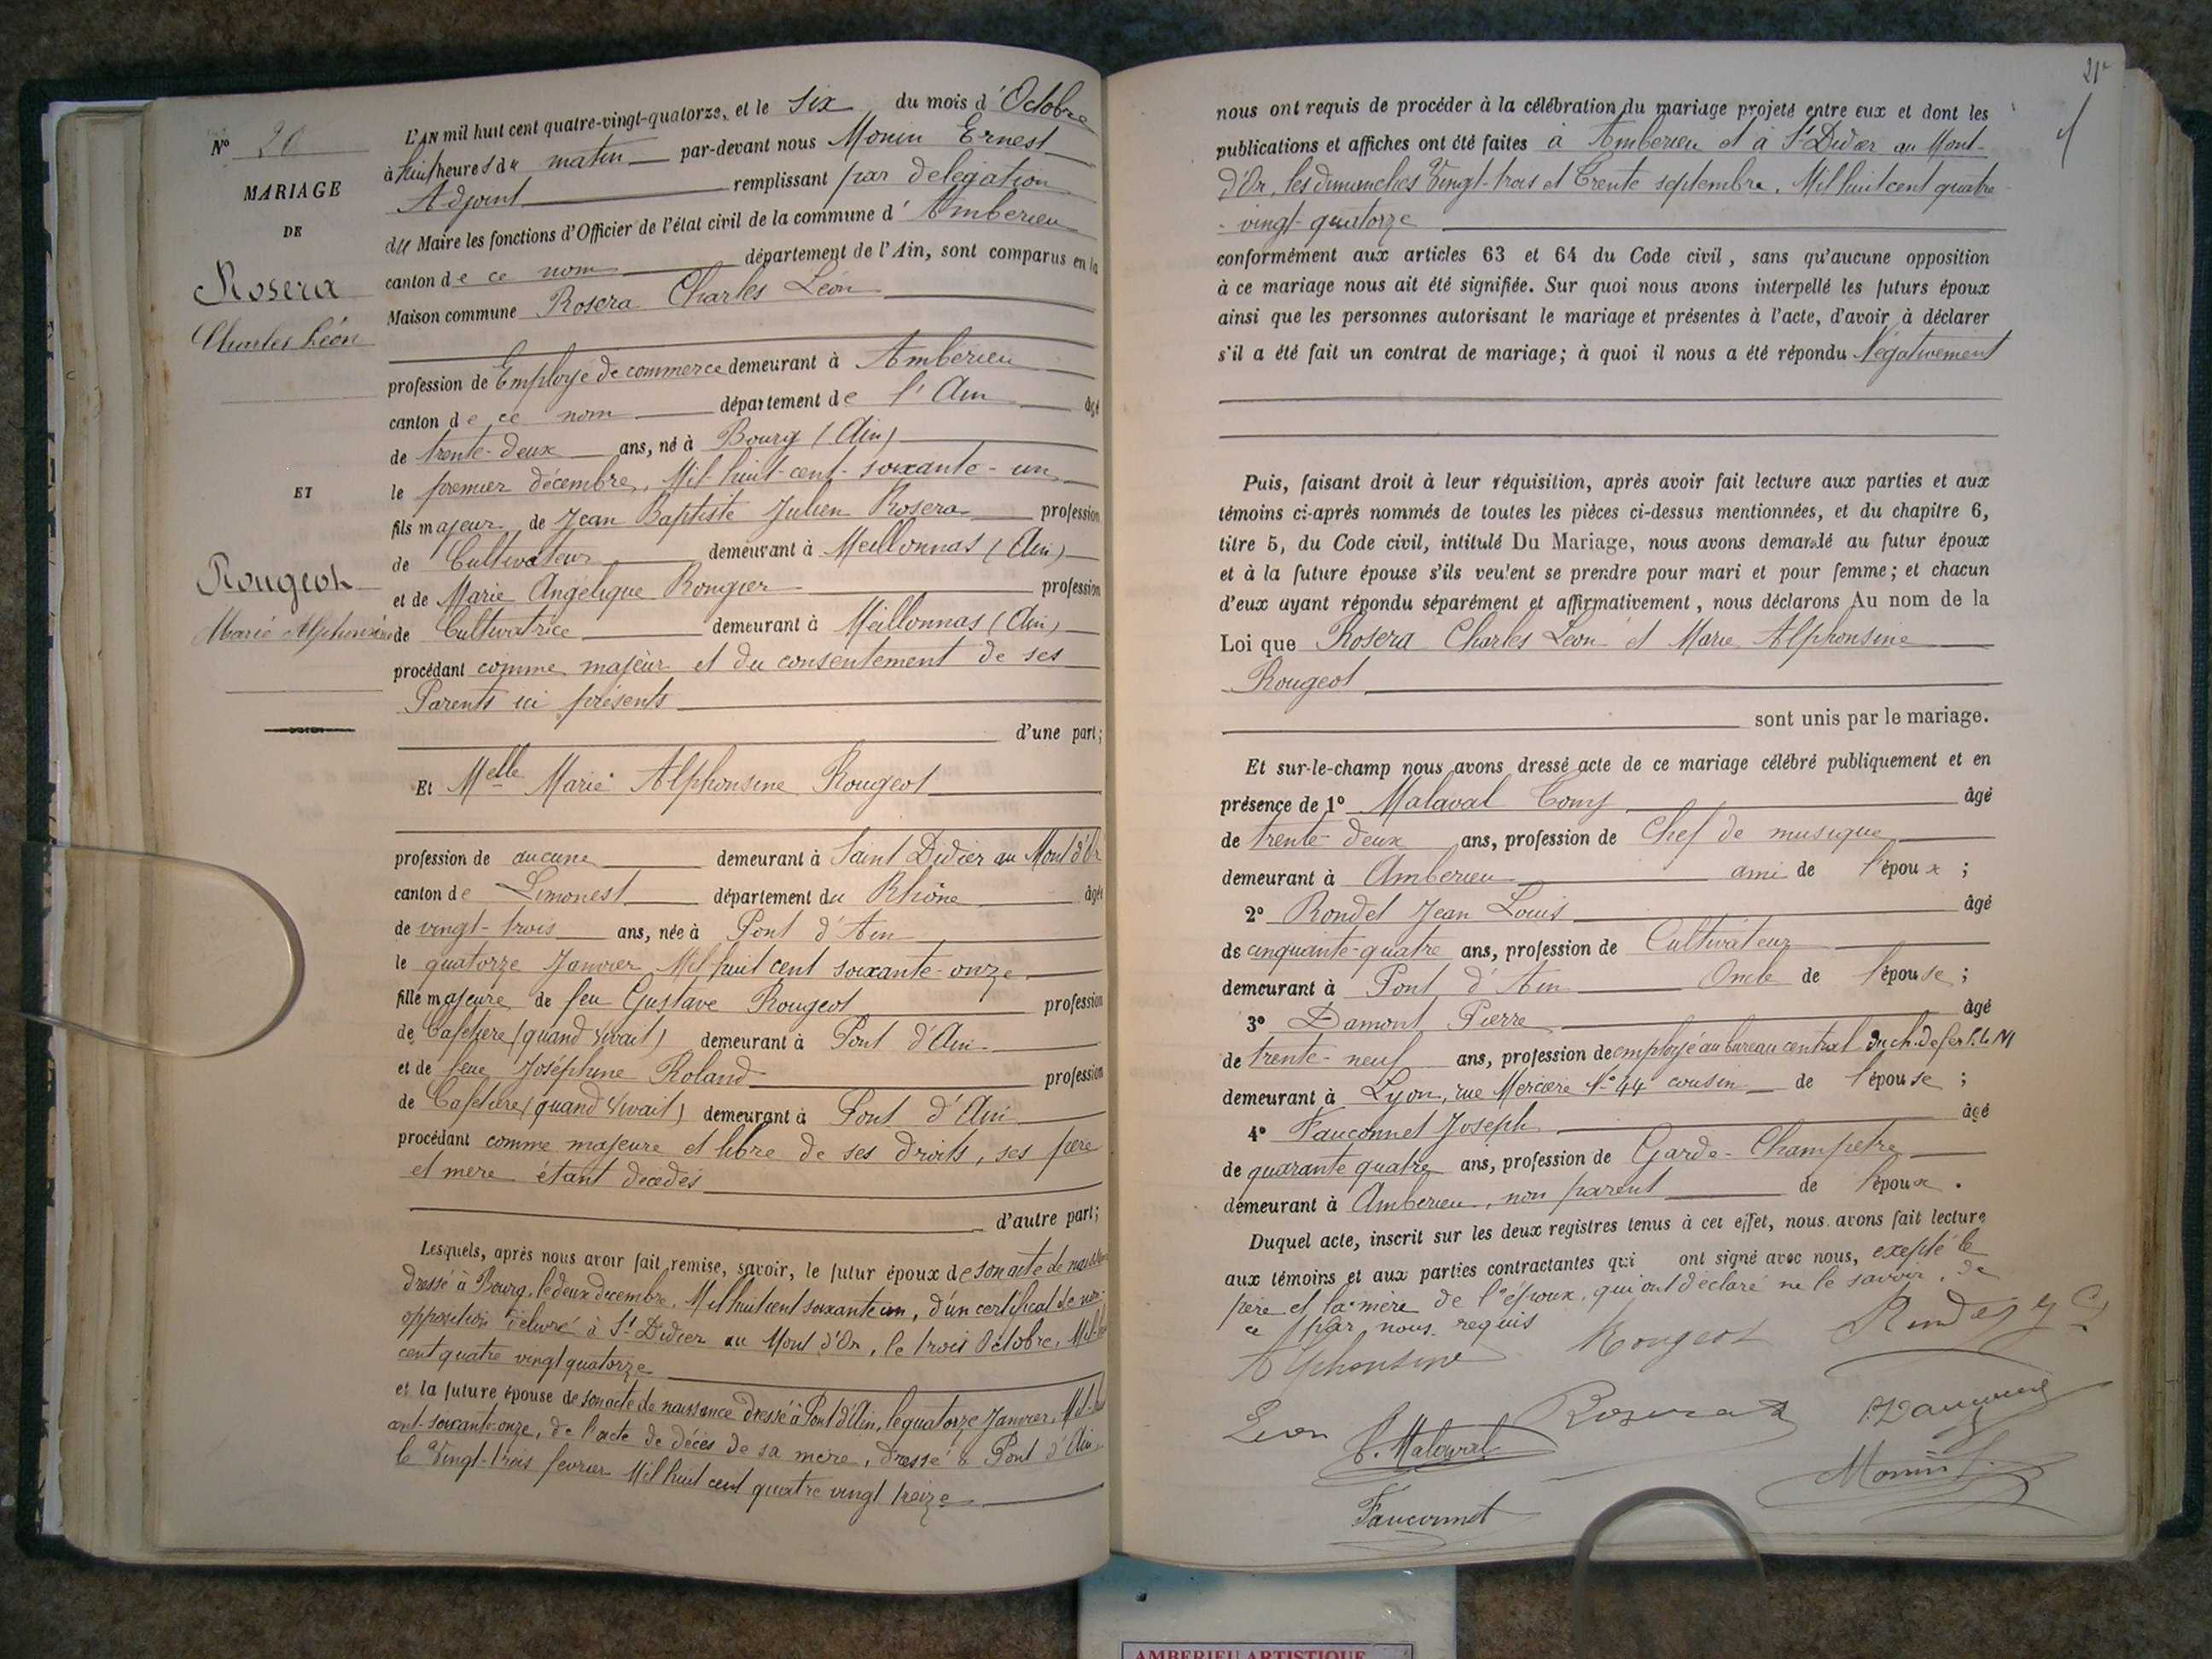 Nº 20
MARIAGE
DE
Rosera
Charles Léon
ET
Rougeot
Marie Alphonsine
L'AN mil huit cent quatre-vingt-quatorze, et le Six du mois d'Octobre
à huit heures du matin par-devant nous Monin Ernest
Adjoint remplissant par délégation
du Maire les fonctions d'Officier de l'état civil de la commune d'Amberieu
canton de ce nom département de l'Ain, sont comparus en la
Maison commune Rosera Charles Léon
profession de Employé de commerce demeurant à Amberieu
canton de ce nom département de l'Ain âgé
de trente-deux ans, né à Bourg (Ain)
le premier décembre, Mil-huit-cent-soixante-un
fils majeur de Jean Baptiste Julien Rosera profession
de Cultivateur demeurant à Meillonnas (Ain)
et de Marie Angélique Rongier profession
de Cultivatrice demeurant à Meillonnas (Ain)
procédant comme majeur et du consentement de ses
Parents ici présents
d'une part;
Et Melle Marie Alphonsine Rougeot
profession de aucune demeurant à Saint Didier au Mont d'Or
canton de Limonest département du Rhône âgée
de vingt-trois ans, née à Pont d'Ain
le quatorze Janvier Mil huit cent soixante-onze
fille majeure de feu Gustave Rougeot profession
de Cafetière (quand vivait) demeurant à Pont d'Ain
et de feue Joséphine Roland profession
de Cafetière (quand vivait) demeurant à Pont d'Ain
procédant comme majeure et libre de ses droits, ses père
et mère étant décédés
d'autre part;
Lesquels, après nous avoir fait remise, savoir, le futur époux de son acte de naissance
dressé à Bourg, le deux décembre, Mil huit cent soixante un, d'un certificat de non
opposition délivré à St Didier au Mont d'Or, le trois Octobre, Mil-huit
cent quatre vingt quatorze
et la future épouse de son acte de naissance dressé à Pont d'Ain, le quatorze Janvier, Mil-huit
cent-soixante-onze, de l'acte de décès de sa mère, dressé à Pont d'Ain
le Vingt-trois février Mil huit cent quatre vingt treize
21
nous ont requis de procéder à la célébration du mariage projeté entre eux et dont les
publications et affiches ont été faites à Amberieu et à St Didier au Mont-
d'Or, les dimanches Vingt-trois et Trente septembre, Mil huit cent quatre
-vingt-quatorze
conformément aux articles 63 et 64 du Code civil, sans qu'aucune opposition
à ce mariage nous ait été signifiée. Sur quoi nous avons interpellé les futurs époux
ainsi que les personnes autorisant le mariage et présentes à l'acte, d'avoir à déclarer
s'il a été fait un contrat de mariage; à quoi il nous a été répondu Négativement
Puis, faisant droit à leur réquisition, après avoir fait lecture aux parties et aux
témoins ci-après nommés de toutes les pièces ci-dessus mentionnées, et du chapitre 6,
titre 5, du Code civil, intitulé Du Mariage, nous avons demandé au futur époux
et à la future épouse s'ils veulent se prendre pour mari et pour femme; et chacun
d'eux ayant répondu séparément et affirmativement, nous déclarons Au nom de la
Loi que Rosera Charles Léon et Marie Alphonsine
Rougeot
sont unis par le mariage.
Et sur-le-champ nous avons dressé acte de ce mariage célébré publiquement et en
présence de 1º Malaval Tony âgé
de trente-deux ans, profession de Chef de musique
demeurant à Amberieu ami de l'époux;
2º Rondet Jean Louis âgé
de cinquante-quatre ans, profession de Cultivateur
demeurant à Pont d'Ain Oncle de l'épouse;
3º Damont Pierre âgé
de trente-neuf ans, profession de employé au bureau central du ch. de fer P.L.M
demeurant à Lyon, rue Mercière Nº 44 cousin de l'épouse;
4º Fauconnet Joseph âgé
de quarante quatre ans, profession de Garde-Champetre
demeurant à Amberieu, non parent de l'époux.
Duquel acte, inscrit sur les deux registres tenus à cet effet, nous avons fait lecture
aux témoins et aux parties contractantes qui ont signé avec nous, excepté le
père et la mère de l'époux, qui ont déclaré ne le savoir, de
ce par nous requis
Alphonsine Rougeot
Léon Rosera
T. Malaval
Monin
Fauconnet
AMBERIEU ARTISTIQUE